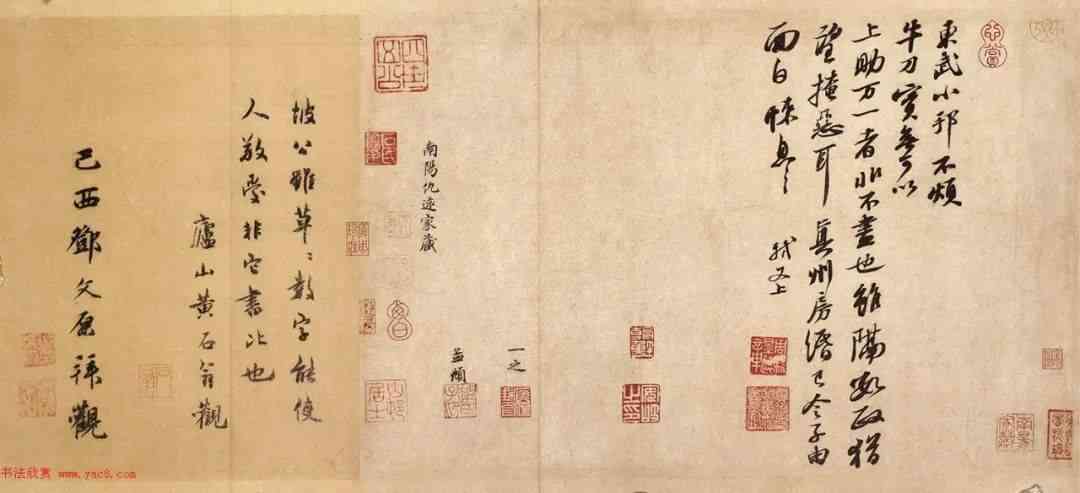 東武小邦不煩
牛刀實無可以
上助万一者非不盡也雖隔數政猶
望掩惡耳真州房緡已令子由
面白悚息〻
軾又上
一之
孟頫
南陽仇遠家藏
坡公雖草〻數字能使
人敬愛非它書比也
廬山黄石翁觀
己酉鄧文原拜觀
书法欣赏 www.yac8.com